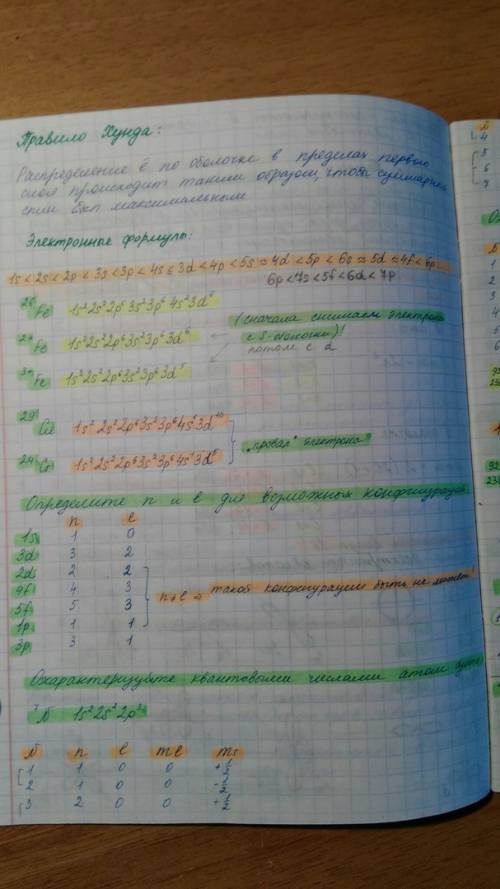 Правило Хунда:
Распределение ē по оболочке в пределах первого
слоя происходит таким образом, чтобы суммарный
спин был максимальным
Электронные формулы:
1s < 2s < 2p < 3s < 3p < 4s ≤ 3d < 4p < 5s ≈ 4d < 5p < 6s ≈ 5d ≈ 4f < 6p
6p < 7s < 5f < 6d < 7p
26 Fe 1s² 2s² 2p⁶ 3s² 3p⁶ 4s² 3d⁶
Fe 1s² 2s² 2p⁶ 3s² 3p⁶ 3d⁶
(сначала снимаем электроны
с S-оболочки)!
потом с d
Fe 1s² 2s² 2p⁶ 3s² 3p⁶ 3d⁵
29 Cu 1s² 2s² 2p⁶ 3s² 3p⁶ 4s¹ 3d¹⁰
„провал" электрона
24 Cr 1s² 2s² 2p⁶ 3s² 3p⁶ 4s¹ 3d⁵
Определите n и l для возможных конфигураций
n l
1s 1 0
3d 3 2
2d 2 2
4f 4 3
5f 5 3
1p 1 1
3p 3 1
такой конфигурации быть не может!
Охарактеризуйте квантовыми числами атом
7 N 1s² 2s² 2p³
N n l ml ms
1 1 0 0 +½
2 1 0 0 -½
3 2 0 0 +½